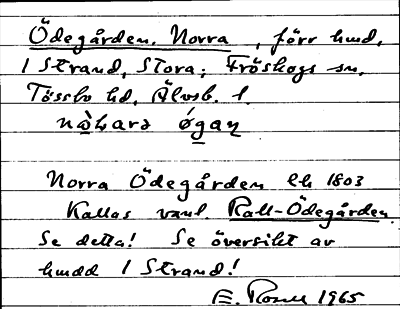 Ödegården, Norra, förr hmd.
I Strand, Stora; Fröskogs sn,
Tössbo hd, Älvsb. l.
nò̱ṟarə ó̱gaṉ
Norra Ödegården Ek 1803
Kallas vanl. Rall-Ödegården.
Se detta! Se översikt av
hmdd I Strand!
E. 1965